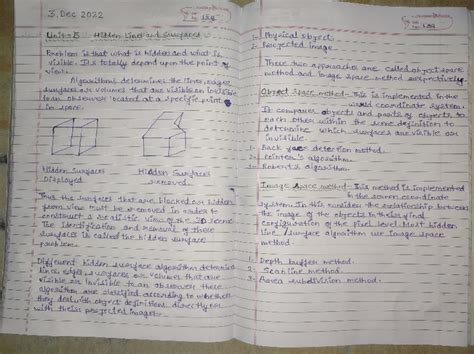 3. Dec 2022
Unit: 5 Hidden Lines and Surfaces
Problem is that what is hidden and what is
visible. It's totally depend upon the point of
view.
Algorithms determines the lines, edges,
surfaces or volumes that are visible or invisible
to an observer located at a specific point
in space.
Hidden Surfaces Hidden Surfaces
Displayed removed
Thus the surfaces that are blocked or hidden
from view must be removed in order to
construct a realistic view of the 3D scene
The identification and removal of these
surfaces is called the hidden surface
problem.
Different hidden surface algorithm determine
lines, edges, surfaces or volumes that are
visible or invisible to an observer these
algorithm are classified according to whether
they deal with object definitions directly or
with their projected images.
1. Physical object
2. Projected image
These two approaches are called object space
method and image space method respectively
Object Space method - This is implemented in the
world coordinate system.
It compares objects and parts of objects to
each other within the scene definition to
determine which surfaces are visible or
invisible.
1- Back face detection method.
2- algorithm
3- Robert's algorithm.
Image space method - This method is implemented
in the screen coordinate
system. In this consider the relationship between
the image of the objects in the final
configuration of the pixel level. Most hidden
line / surface algorithm use image space
method.
1. Depth buffer method
2. Scanline method.
3. Area subdivision method.